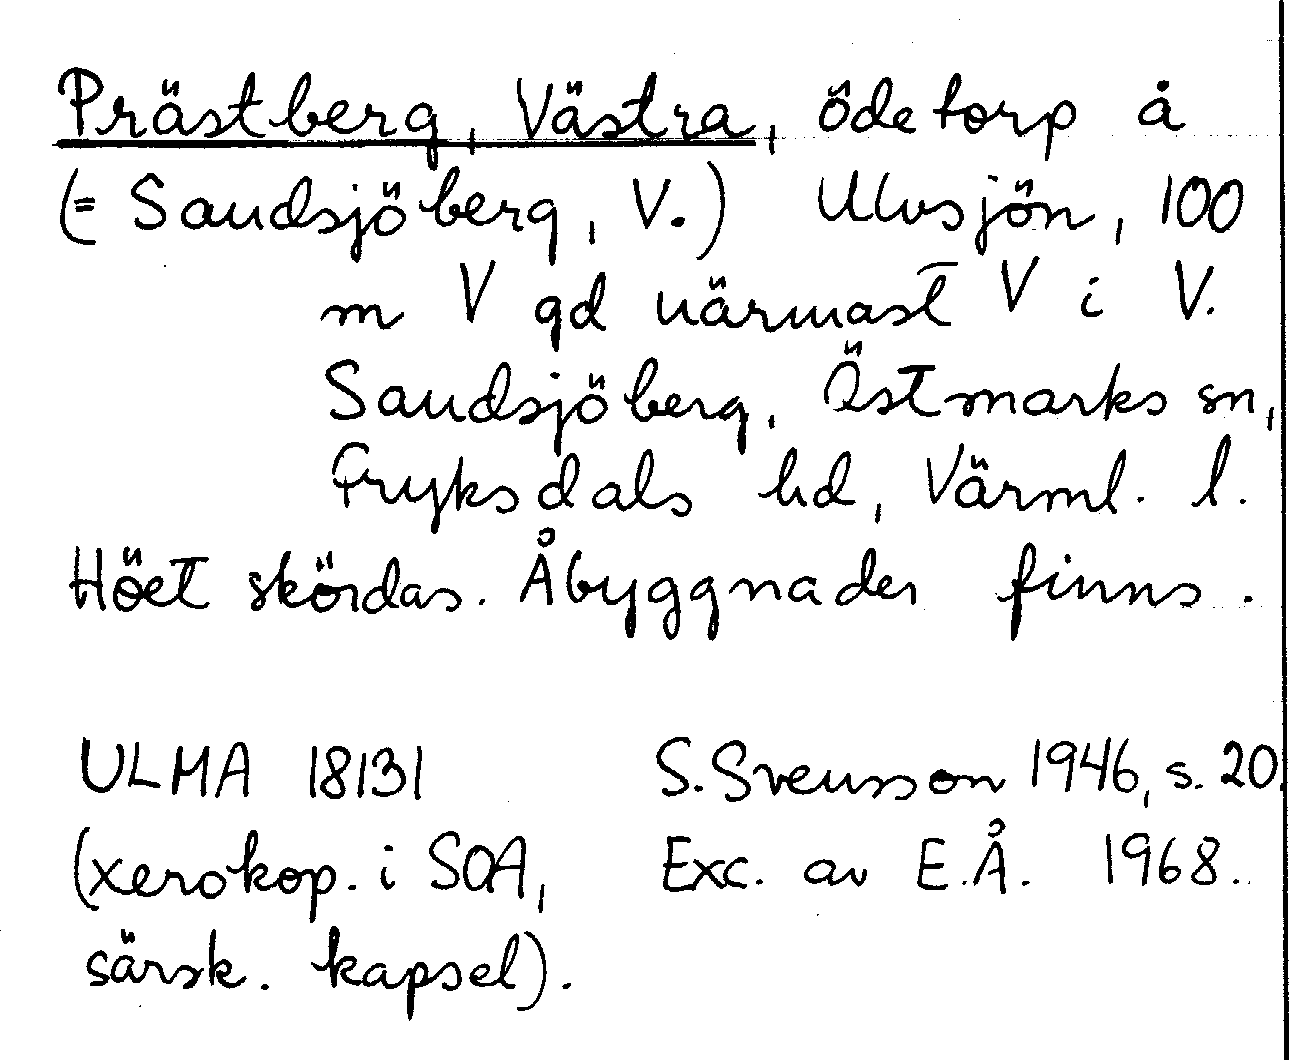 Prästberg, Västra, ödetorp å
(= Sandsjöberg, V.) Ulvsjön, 100
m V gd närmast V i V.
Sandsjöberg, Östmarks sn,
Fryksdals hd, Värml. l.
Höet skördas. Åbyggnader finns.
ULMA 18131 S. Svensson 1946, s. 20.
(xerokop. i SOA, Exc. av E.Å. 1968.
särsk. kapsel).